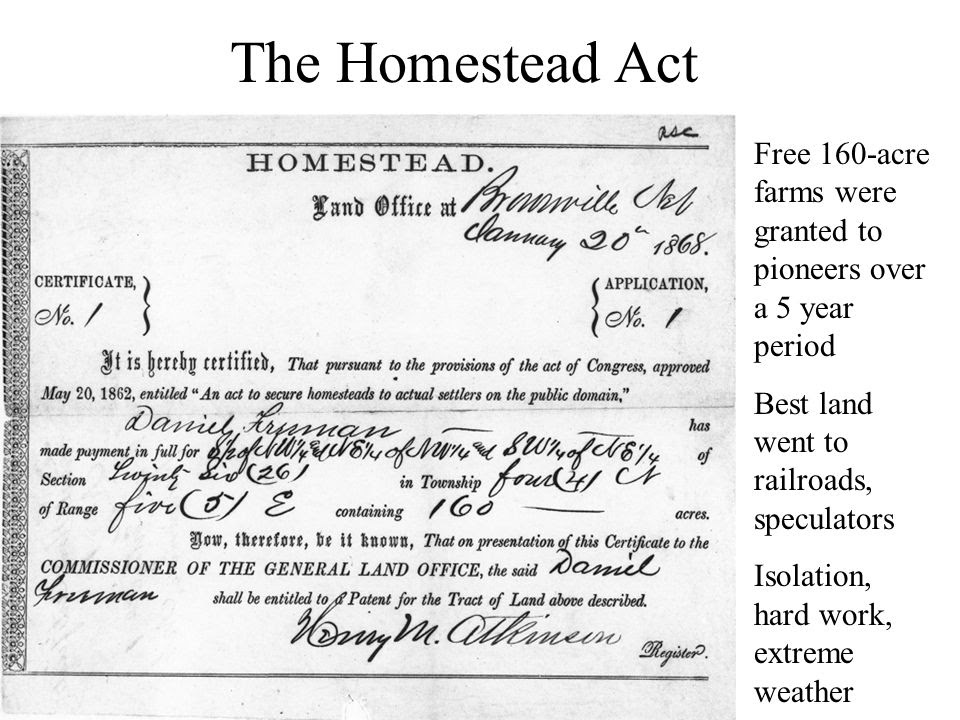 The Homestead Act
asc
HOMESTEAD.
Land Office at Brownville Neb
January 20th 1868.
CERTIFICATE, No. 1
APPLICATION, No. 1
It is hereby certified, That pursuant to the provisions of the act of Congress, approved
May 20, 1862, entitled “An act to secure homesteads to actual settlers on the public domain,”
Daniel Freeman has
made payment in full for S½ of NW¼ and NE¼ of NW¼ and SW¼ of NE¼ of
Section Twenty Six (26) in Township four (4) N
of Range five (5) E containing 160 acres.
Now, therefore, be it known, That on presentation of this Certificate to the
COMMISSIONER OF THE GENERAL LAND OFFICE, the said Daniel
Freeman shall be entitled to a Patent for the Tract of Land above described.
Henry M. Atkinson
Register.
Free 160-acre
farms were
granted to
pioneers over
a 5 year
period
Best land
went to
railroads,
speculators
Isolation,
hard work,
extreme
weather